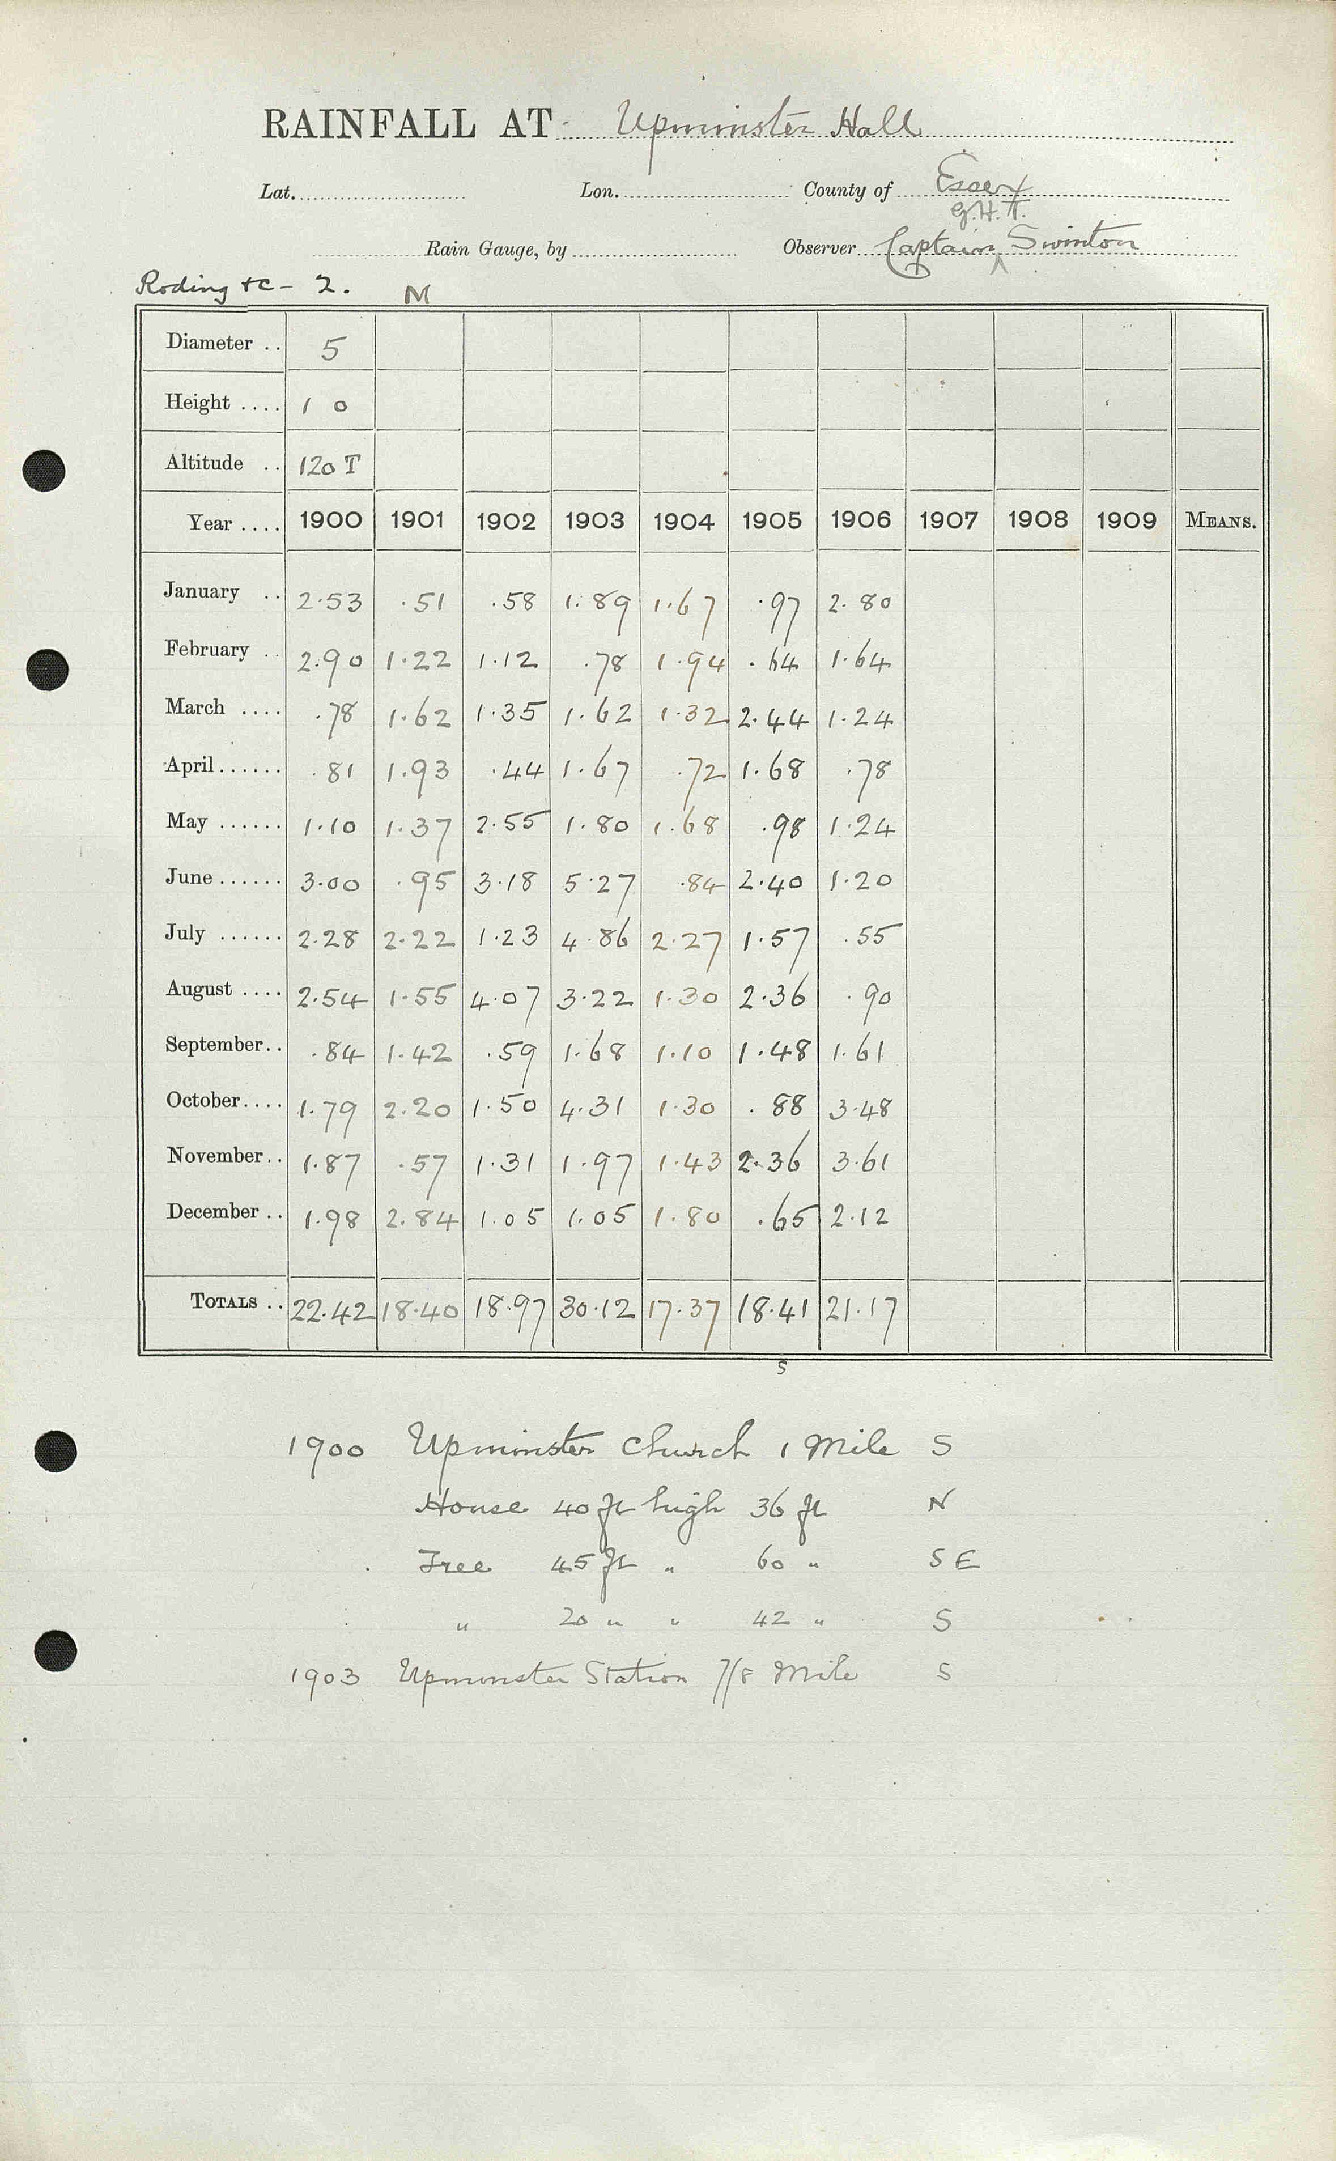 RAINFALL AT Upminster Hall
Lat. Lon. County of Essex
G.H.T.
Rain Gauge, by Observer Captain ^ Swinton
Roding &c - 2. M
Diameter .. 5
Height .... 1 0
Altitude .. 120 T
Year .... 1900 1901 1902 1903 1904 1905 1906 1907 1908 1909 MEANS.
January .. 2.53 .51 .58 1.89 1.67 .97 2.80
February .. 2.90 1.22 1.12 .78 1.94 .64 1.64
March .... .78 1.62 1.35 1.62 1.32 2.44 1.24
April...... .81 1.93 .44 1.67 .72 1.68 .78
May ...... 1.10 1.37 2.55 1.80 1.68 .98 1.24
June...... 3.00 .95 3.18 5.27 .84 2.40 1.20
July ...... 2.28 2.22 1.23 4.86 2.27 1.57 .55
August .... 2.54 1.55 4.07 3.22 1.30 2.36 .90
September.. .84 1.42 .59 1.68 1.10 1.48 1.61
October.... 1.79 2.20 1.50 4.31 1.30 .88 3.48
November.. 1.87 .57 1.31 1.97 1.43 2.36 3.61
December .. 1.98 2.84 1.05 1.05 1.80 .65 2.12
TOTALS .. 22.42 18.40 18.97 30.12 17.37 18.41 21.17
S
1900 Upminster Church 1 Mile S
House 40 ft high 36 ft N
Tree 45 ft " 60 " S E
" 20 " " 42 " S
1903 Upminster Station 7/8 Mile S